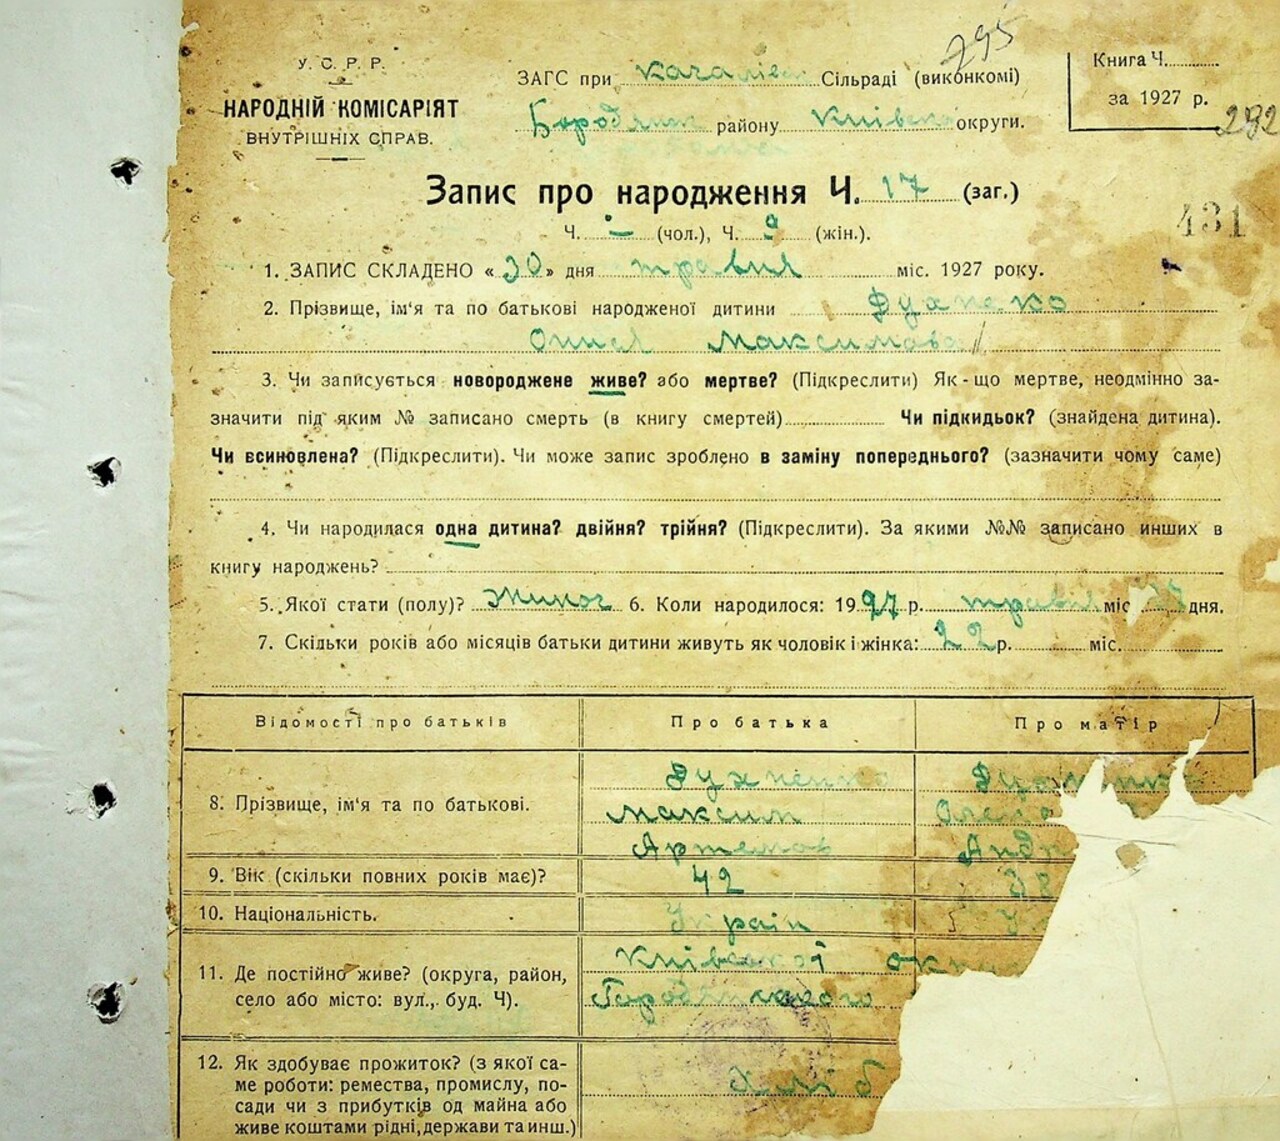 295
У. С. Р. Р.
НАРОДНІЙ КОМІСАРІЯТ
ВНУТРІШНІХ СПРАВ.
ЗАГС при Сільраді (виконкомі)
району округи.
Книга Ч.
за 1927 р.
292
Запис про народження Ч. 17 (заг.)
431
Ч. – (чол.), Ч. 9 (жін.).
1. ЗАПИС СКЛАДЕНО « 30 » дня травня міс. 1927 року.
2. Прізвище, ім'я та по батькові народженої дитини
Максимова
3. Чи записується новороджене живе? або мертве? (Підкреслити) Як-що мертве, неодмінно за-
значити під яким № записано смерть (в книгу смертей) Чи підкидьок? (знайдена дитина).
Чи всиновлена? (Підкреслити). Чи може запис зроблено в заміну попереднього? (зазначити чому саме)
4. Чи народилася одна дитина? двійня? трійня? (Підкреслити). За якими №№ записано инших в
книгу народжень?
5. Якої стати (полу)? Жиноч 6. Коли народилося: 1927 р. травня міс дня.
7. Скільки років або місяців батьки дитини живуть як чоловік і жінка: 22 р. міс.
Відомості про батьків Про батька Про матір
8. Прізвище, ім'я та по батькові.
Максим
Артемов
9. Вік (скільки повних років має)? 42
10. Національність. Україн
11. Де постійно живе? (округа, район,
село або місто: вул., буд. Ч).
Київської
12. Як здобуває прожиток? (з якої са-
ме роботи: ремества, промислу, по-
сади чи з прибутків од майна або
живе коштами рідні, держави та инш.)